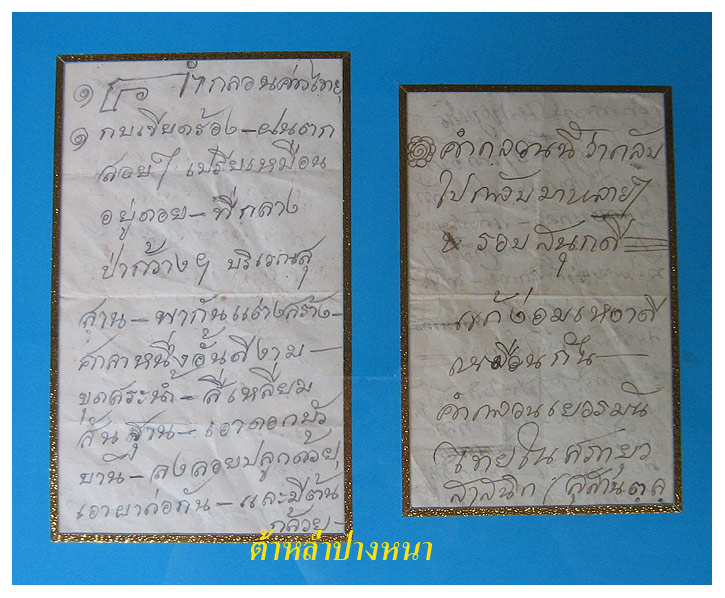 ๑ คำกลอนคร่าวไทย
๑ กบเขียดร้อง - ฝนตก
สอยๆ เปรียบเหมือน
อยู่ดอย - ที่กลาง
ป่ากว้างๆ บริเวณสุ
สาน - พากันแต่งสร้าง -
ศาลาหนึ่งอั้นดีงาม -
ขุดสระน้ำ - สี่เหลี่ยม
สันฐาน - เอาดอกบัว
บาน - ลงลอยปลูกด้วย
เอายาก่อกัน - และมีต้น
กล้วย -
คำกลอนนี้ว่ากลับ
ไปกลับมาหลายๆ
รอบสนุกดี
แก้ง่อมเหงาดี
เหมือนกัน
คำกลอนเยอรมัน
ไทยใน
สุสานตุลุ
ต้าหล่ำปางหนา